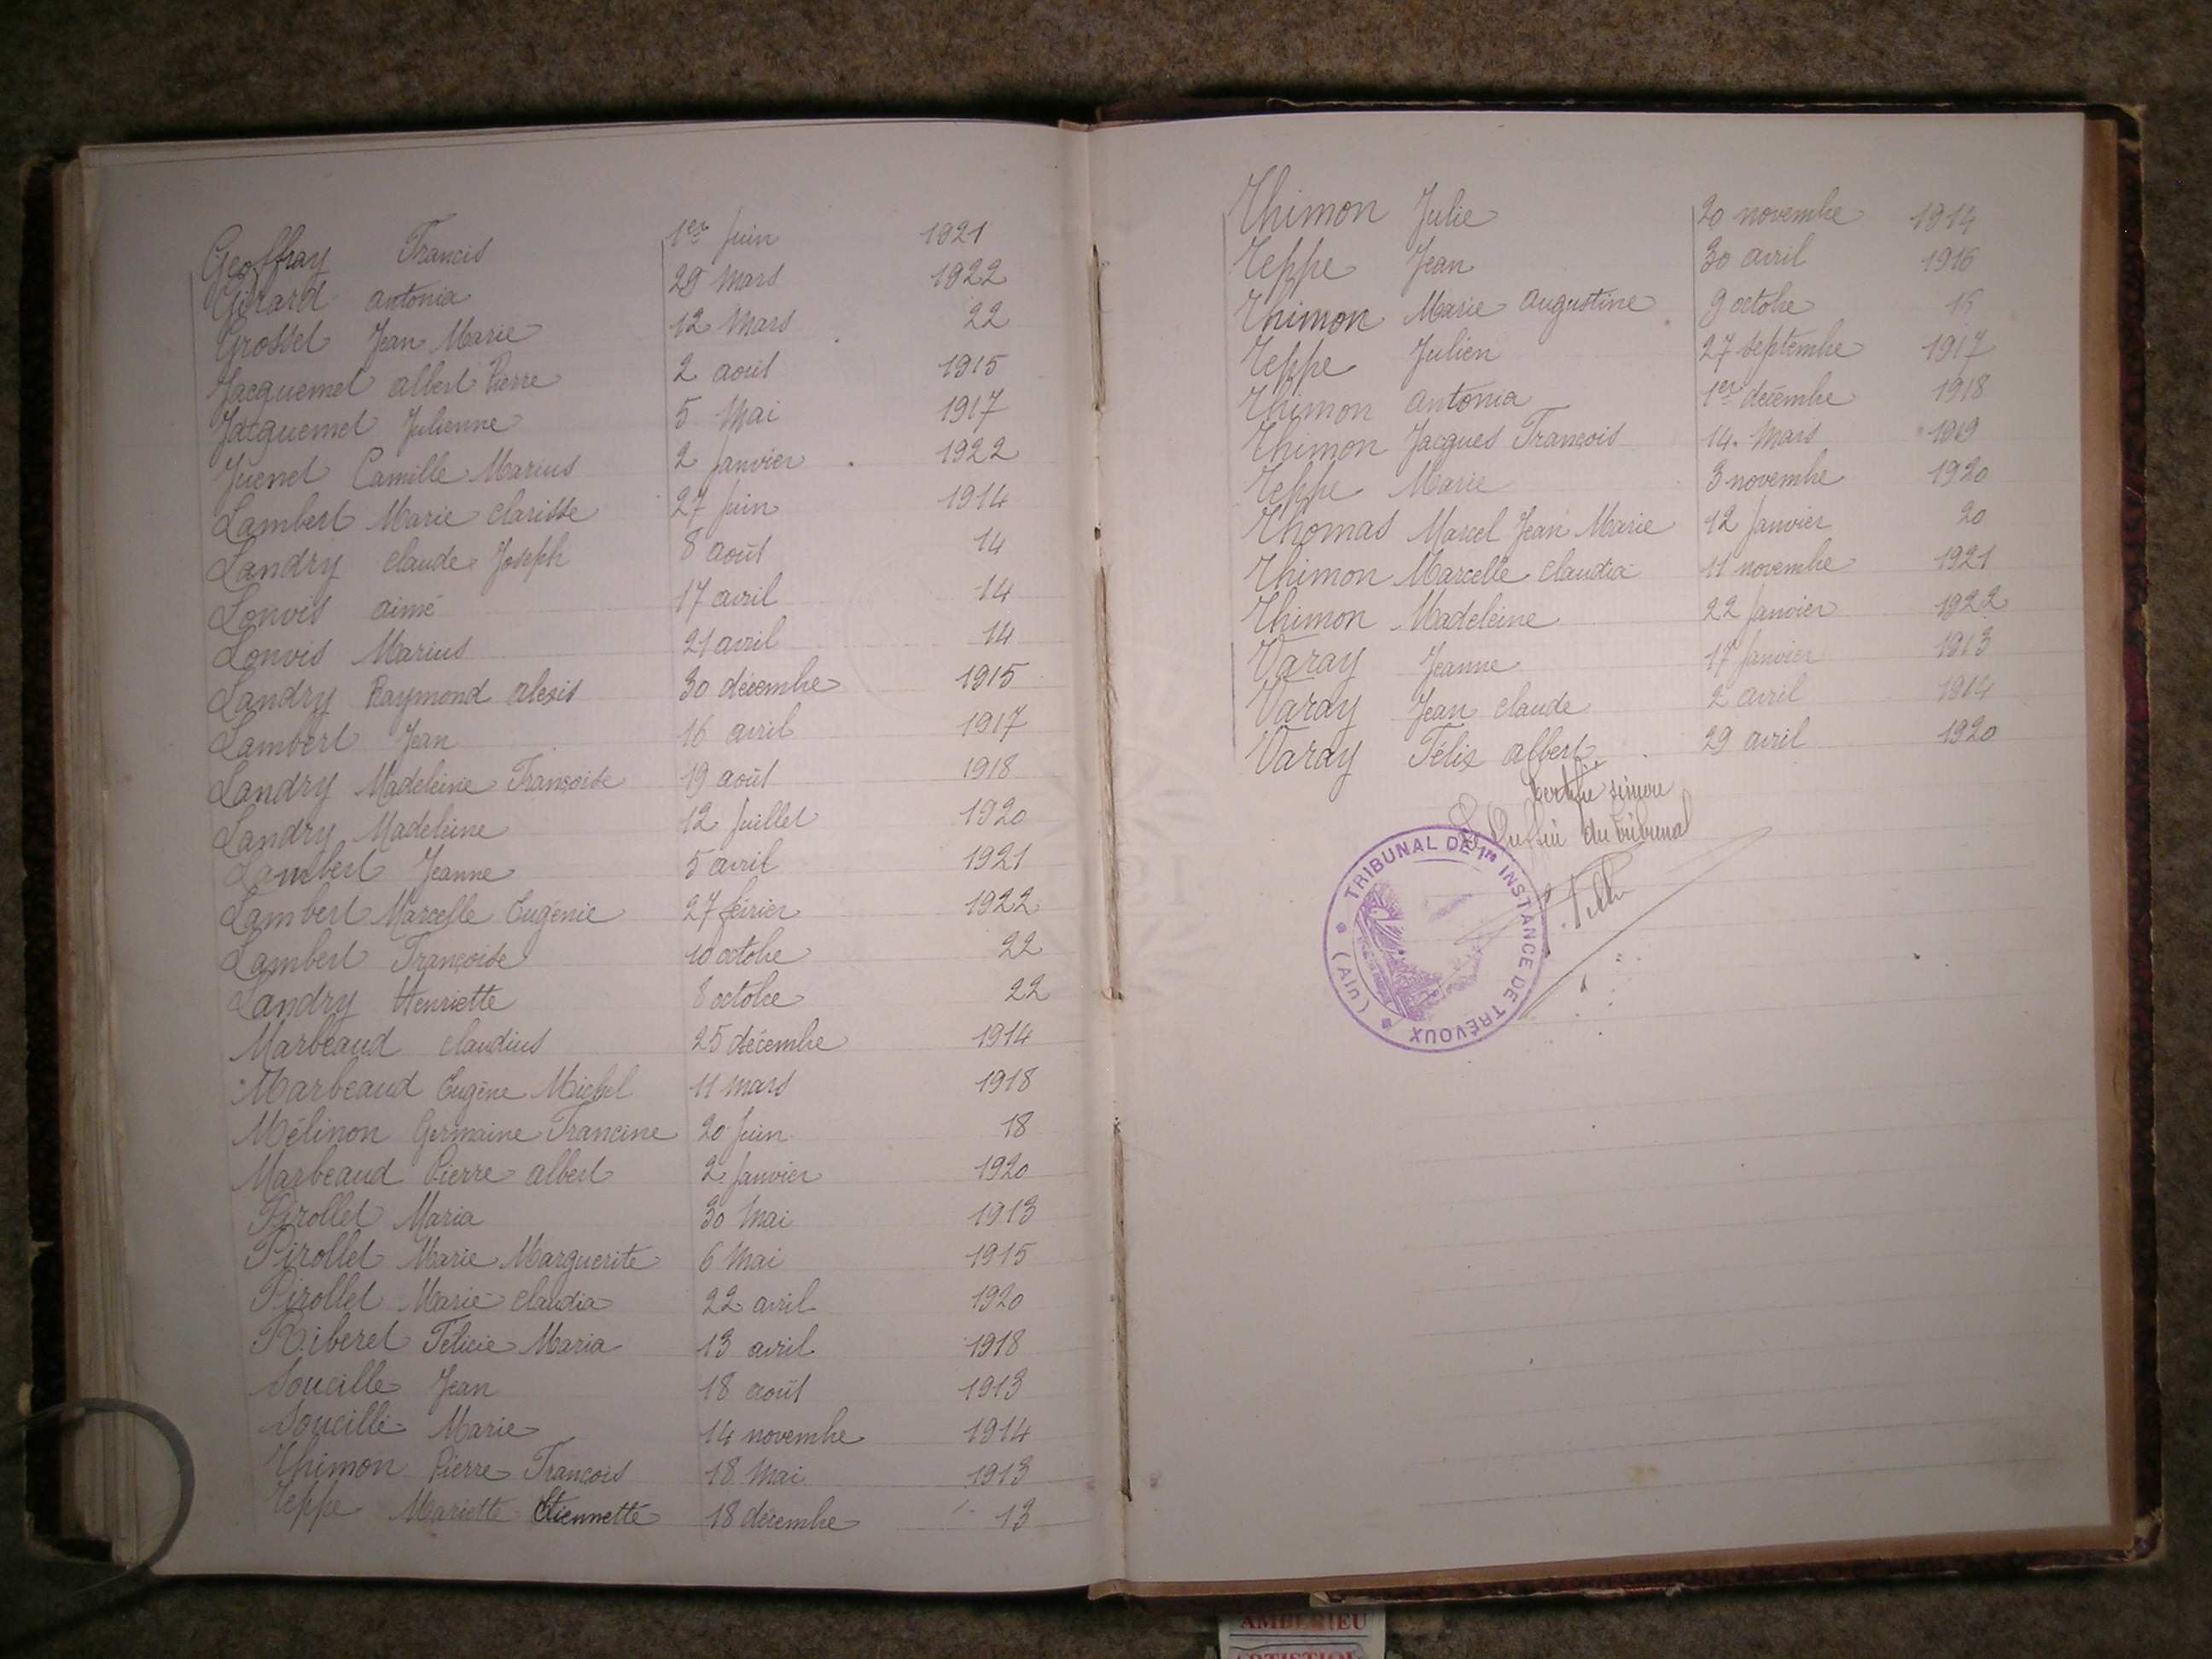 Geoffray Francis 1er Juin 1921
Girard antonia 29 Mars 1922
Grosset Jean Marie 12 Mars 22
Jacquemet albert Pierre 2 août 1915
Jacquemet Julienne 5 Mai 1917
Juenet Camille Marius 2 Janvier 1922
Lambert Marie Clarisse 27 Juin 1914
Landry Claude Joseph 8 août 14
Lonvis aimé 17 avril 14
Lonvis Marius 21 avril 14
Landry Raymond alexis 30 décembre 1915
Lambert Jean 16 avril 1917
Landry Madeleine Françoise 19 août 1918
Landry Madeleine 12 Juillet 1920
Lambert Jeanne 5 avril 1921
Lambert Marcelle Eugénie 27 février 1922
Lambert Françoise 10 octobre 22
Landry Henriette 8 octobre 22
Marbeaud Claudius 25 décembre 1914
Marbeaud Eugène Michel 11 Mars 1918
Mélinon Germaine Francine 20 Juin 18
Marbeaud Pierre albert 2 Janvier 1920
Pirollet Maria 30 Mai 1913
Pirollet Marie Marguerite 6 Mai 1915
Pirollet Marie Claudia 22 avril 1920
Riberet Félicie Maria 13 avril 1918
Soucille Jean 18 août 1913
Soucille Marie 14 novembre 1914
Thimon Pierre François 18 Mai 1913
Teppe Mariette Etiennette 18 décembre 13
Thimon Julie 20 novembre 1914
Teppe Jean 30 avril 1916
Thimon Marie Augustine 9 octobre
Teppe Julien 27 septembre 1917
Thimon antonia 1er décembre 1918
Thimon Jacques François 14 Mars 1919
Teppe Marie 3 novembre 1920
Thomas Marcel Jean Marie 12 Janvier 20
Thimon Marcelle Claudia 11 novembre 1921
Thimon Madeleine 22 Janvier 1922
Varay Jeanne 17 Janvier 1913
Varay Jean Claude 2 avril 1914
Varay Félix albert 29 avril 1920
du tribunal
TRIBUNAL DE 1re INSTANCE DE TRÉVOUX
(Ain)
AMBERIEU